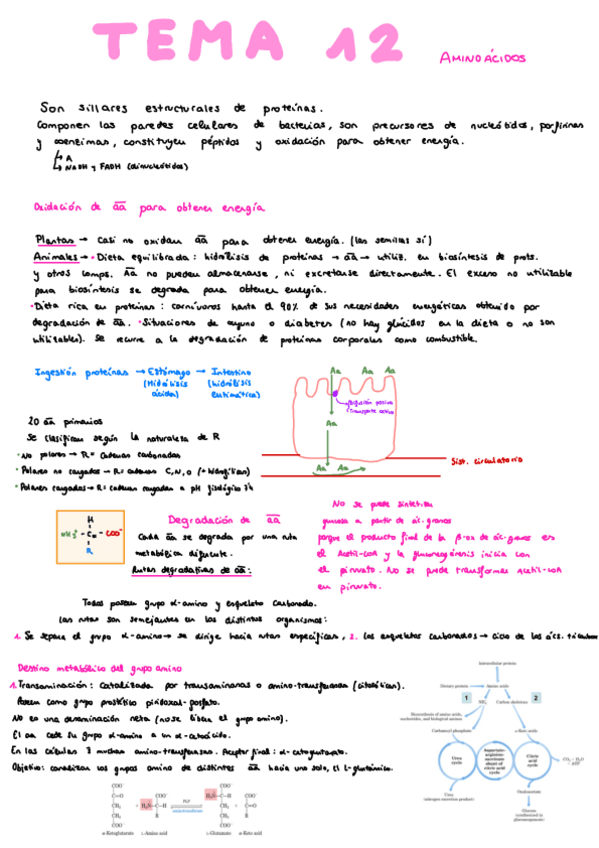 TEMA 12 AMINOÁCIDOS
Son sillares estructurales de proteínas.
Componen las paredes celulares de bacterias, son precursores de nucleótidos, porfirinas
y coenzimas, constituyen péptidos y oxidación para obtener energía.
A
NADH y FADH (dinucleótidos)
Oxidación de aa para obtener energía
Plantas → casi no oxidan aa para obtener energía. (las semillas sí)
Animales → · Dieta equilibrada: hidrólisis de proteínas → aa → utiliz. en biosíntesis de prots.
y otros comps. Aa no pueden almacenarse, ni excretarse directamente. El exceso no utilizable
para biosíntesis se degrada para obtener energía.
· Dieta rica en proteínas: carnívoros hasta el 90% de sus necesidades energéticas obtenido por
degradación de aa. · Situaciones de ayuno o diabetes (no hay glúcidos en la dieta o no son
utilizables). Se recurre a la degradación de proteínas corporales como combustible.
Ingestión proteínas → Estómago → Intestino
(Hidrólisis ácida) (hidrólisis enzimática)
Aa Aa Aa
Aa
Aa Aa
Sist. circulatorio
20 aa primarios
Se clasifican según la naturaleza de R
· No polares → R = cadenas carbonadas
· Polares no cargados → R = cadenas C, N, O (+ hidrófilas)
· Polares cargados → R = cadenas cargadas a pH fisiológico
H
C COO⁻
R
Degradación de aa
Cada aa se degrada por una ruta
metabólica diferente.
Rutas degradativas de aa:
No se puede
glucosa a partir de ác. grasos
porque el producto final de la β-ox de ác. grasos es
el Acetil-CoA y la gluconeogénesis inicia con
el piruvato. No se puede transformar Acetil-CoA
en piruvato.
Todos poseen grupo α-amino y esqueleto carbonado.
Las rutas son semejantes en los distintos organismos:
1. Se separa el grupo α-amino → se dirige hacia rutas específicas, 2. Los esqueletos carbonados → ciclo de los ács.
Destino metabólico del grupo amino
1. Transaminación: Catalizada por transaminasas o amino-transferasas (citosólicas).
Poseen como grupo prostético piridoxal-fosfato.
No es una desaminación neta (no se libera el grupo amino).
El aa cede su grupo α-amino a un α-cetoácido.
En las células muchas amino-transferasas. Aceptor final: α-cetoglutarato.
Objetivo: canalizar los grupos amino de distintos aa hacia uno solo, el L-glutámico.
Intracellular protein
Dietary protein Amino acids
1 2
NH₄⁺ Carbon skeletons
Biosynthesis of amino acids,
nucleotides, and biological amines
Carbamoyl phosphate α-Keto acids
Urea cycle
Aspartate-arginino-succinate shunt of citric acid cycle
Citric acid cycle
CO₂ + H₂O + ATP
Urea
(nitrogen excretion product)
Oxaloacetate
Glucose
(synthesized in gluconeogenesis)
COO⁻ COO⁻
C=O COO⁻ H₃N—C—H COO⁻
CH₂ H₃N—C—H PLP CH₂ C=O
CH₂ R aminotransferase CH₂ R
COO⁻ COO⁻
α-Ketoglutarate L-Amino acid L-Glutamate α-Keto acid